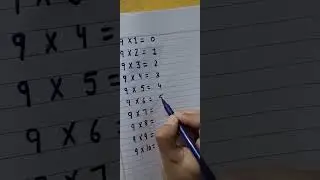 9 X 1 = 0
9 X 2 = 1
9 X 3 = 2
9 X 4 = 3
9 X 5 = 4
9 X 6 = 5
9 X 7 =
9 X 8 =
9 X 9 =
9 X 10 =